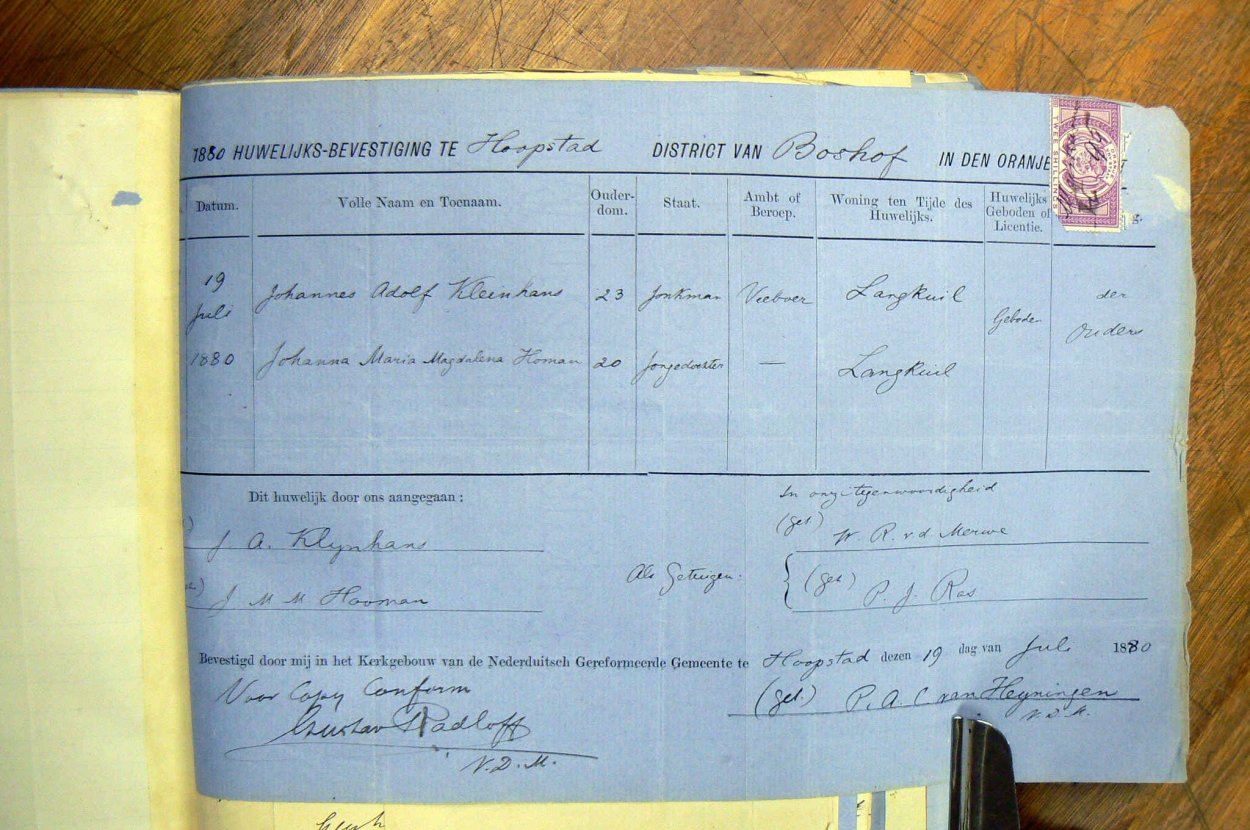 1880 HUWELIJKS-BEVESTIGING TE Hoopstad DISTRICT VAN Boshof IN DEN ORANJE
Datum. Volle Naam en Toenaam. Ouder-dom. Staat. Ambt of Beroep. Woning ten Tijde des Huwelijks. Huwelijks Geboden of Licentie.
19 Juli Johannes Adolf Kleinhans 23 Jonkman Veeboer Langkuil Geboden der Ouders
1880 Johanna Maria Magdalena Homan 20 Jongedochter — Langkuil
Dit huwelijk door ons aangegaan: In onze tegenwoordigheid
J. A. Klynhans (get) W. R. v.d. Merwe
J M M Hooman Als Getuigen: (get) P. J. Ras
Bevestigd door mij in het Kerkgebouw van de Nederduitsch Gereformeerde Gemeente te Hoopstad dezen 19 dag van Juli 1880
Voor Copy Conform (get.) P. A. C van Heyningen
V.D.M.
Gustav Radloff
V.D.M.